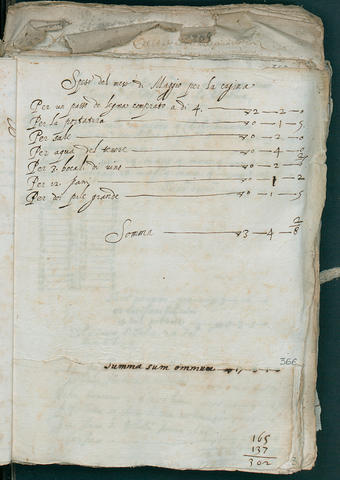 Spesi del mese di Maggio per la cucina
Per un passo de legna comprato a di 4. 2 2 0
Per la portatura 0 1 5
Per sale 0 2 0
Per aqua del tevere 0 4
Per 3. bocali di vino 0 2
Per 12. pani 1 2
Per doi pile grande 0 1 5
Somma 3 4
366
summa sum ommum
165
137
302